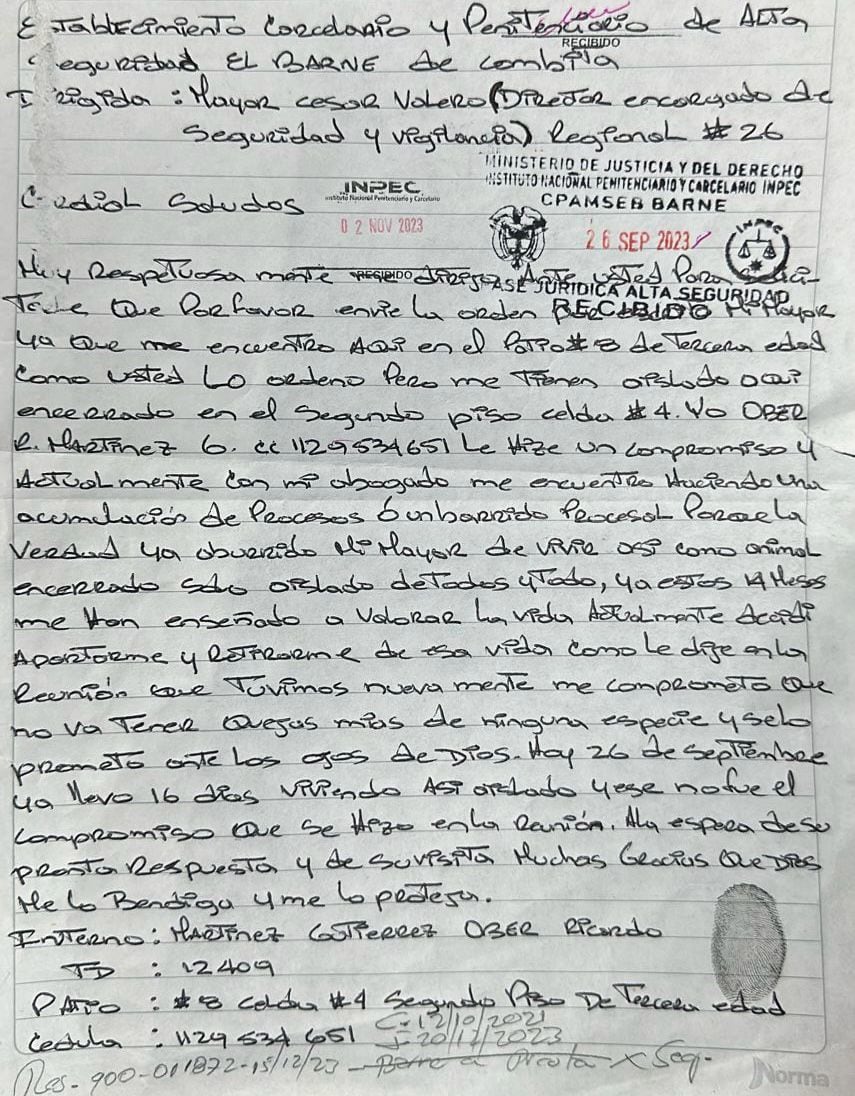 Establecimiento Carcelario y Penitenciario de Alta
RECIBIDO
Seguridad EL BARNE de Combita
Dirigida : Mayor cesar Valero (Director encargado de
Seguridad y vigilancia) Regional #26
MINISTERIO DE JUSTICIA Y DEL DERECHO
INSTITUTO NACIONAL PENITENCIARIO Y CARCELARIO INPEC
CPAMSEB BARNE
INPEC
Instituto Nacional Penitenciario y Carcelario
Cordial Saludos
02 NOV 2023
26 SEP 2023
INPEC
Muy Respetuosa mente dirijo Ante usted Para solici-
RECIBIDO
ASE JURÍDICA ALTA SEGURIDAD
RECIBIDO
Tarle Que Por favor envie la orden Mi Mayor
ya Que me encuentro AQui en el Patio #8 de Tercera edad
como usted Lo ordeno Pero me Tienen aislado aqui
encerrado en el Segundo piso celda #4. Yo OBER
R. MARTINEZ G. cc 1129534651 Le Hize un compromiso y
Actualmente con mi abogado me encuentro Haciendo una
acumulación de Procesos ó un barrido Procesal Porque la
Verdad ya aburrido Mi Mayor de vivir asi como animal
encerrado solo aislado de Todos y Todo, ya estos 14 Meses
me Han enseñado a valorar La vida Actualmente decidi
Apartarme y Retirarme de esa vida como le dije en la
Reunión que Tuvimos nueva mente me comprometo que
no va Tener Quejas mias de ninguna especie y se lo
prometo ante los ojos de Dios. Hoy 26 de septiembre
ya llevo 16 dias viviendo Asi aislado y ese no fue el
compromiso Que se Hizo en la Reunión. A la espera de su
pronta Respuesta y de su visita Muchas Gracias Que Dios
Me lo Bendiga y me lo proteja.
Interno : MARTINEZ GUTIERREZ OBER Ricardo
TD : 12409
PATIO : #8 Celda #4 Segundo Piso De Tercera edad
Cedula : 1129 534 651 C-12/10/2021
I-20/12/2023
Res- 900-011872-15/12/23 - Barne a x Seg-
Norma